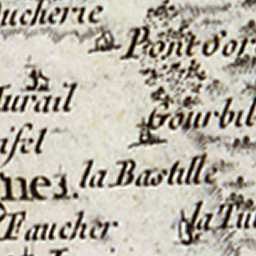 ucherie
Pont d'or
urail
Gourbil
ifel
la Bastille
nes.
Faucher
la Tu